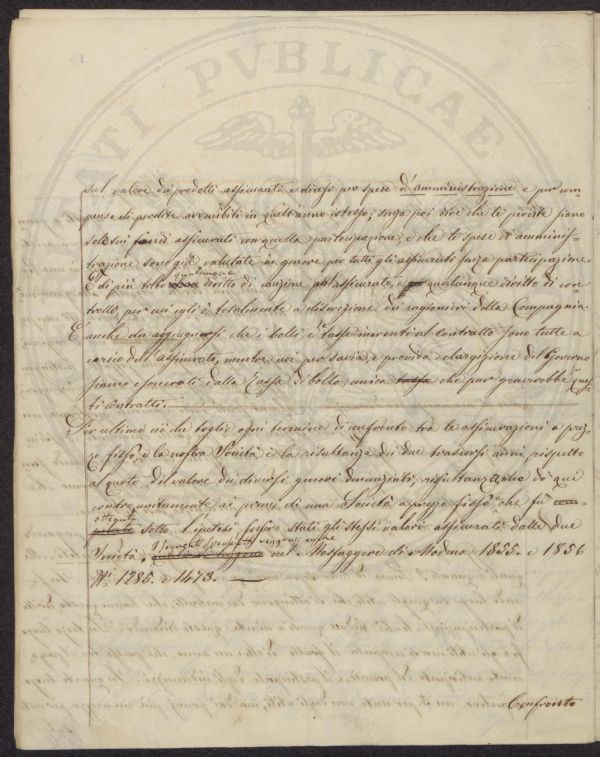 sul valore dei prodotti assicurati e dicesi per spese d'amministrazione e per com-
pensi di perdite avvenibili in quell'anno istesso, senza poi dire che le perdite siano
solo sui assicurati con quella partecipazione, e che le spese di amminis-
trazione sono già valutate in genere per tutti gli assicurati senza partecipazione
E di più tolto qualunque diritto di all'assicurato, e qualunque diritto di con-
trollo, per cui egli è totalmente a discrezione dei ragionieri della Compagnia.
È anche da aggiungersi che i bolli, e tasse inerenti al contratto sono tutte a
carico dell'assicurato, mentre noi per savia, e provida elargizione del Governo
siamo esonerati dalla Tassa di bollo, unica tassa che pur graverebbe ques-
ti contratti.
Per ultimo ciò che toglie ogni termine di confronto tra le assicurazioni a prez-
zo fisso, e la nostra Società è la risultanza dei due trascorsi anni, rispetto
a quota del valore dei diversi generi denunziati, risultanza che do qui
contro unitamente ai premj di una Società a prezzo fisso, che fu
ottenuta sotto l'ipotesi fossero stati gli stessi valori assicurati dalle due
Società, nel Messaggere di Modena 1855. e 1856
N.i 1285. e 1473.
Confronto
PVBLICAE